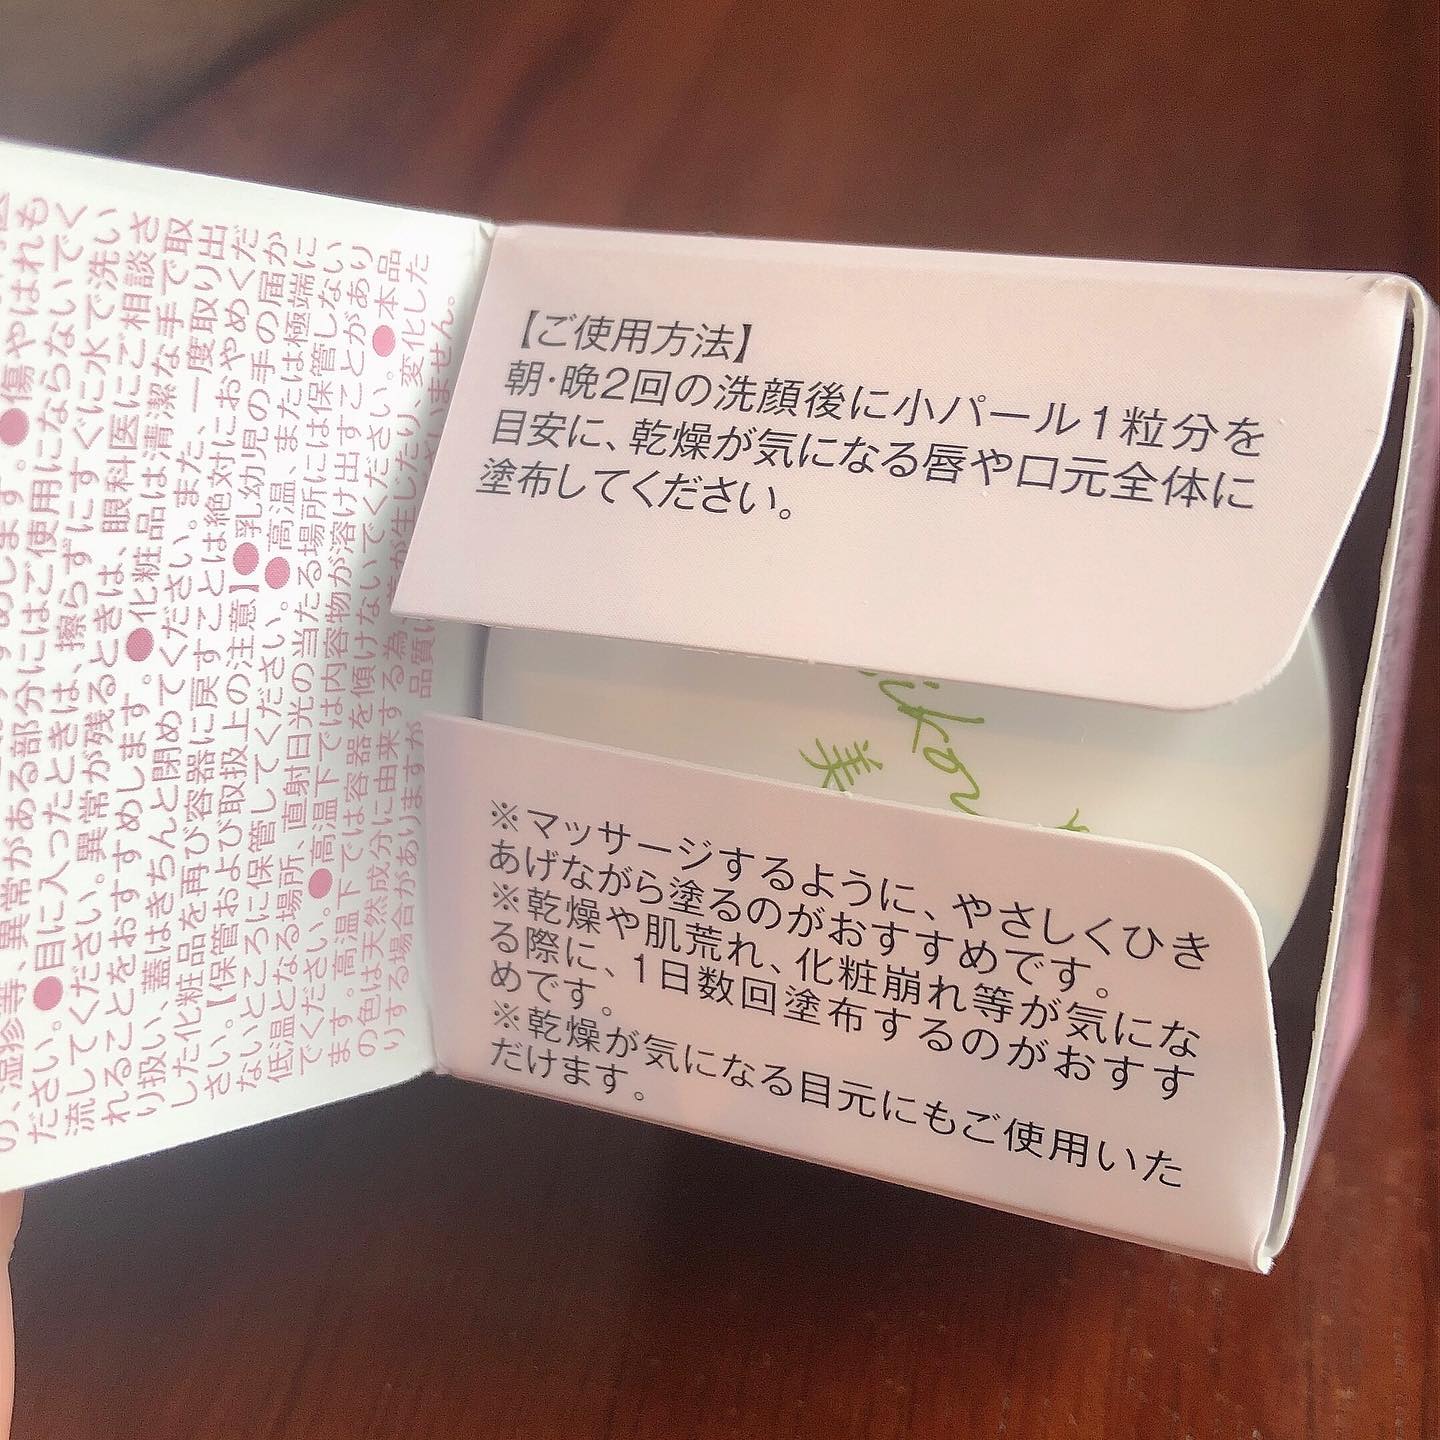 【ご使用方法】
朝・晩2回の洗顔後に小パール1粒分を
目安に、乾燥が気になる唇や口元全体に
塗布してください。
※マッサージするように、やさしくひき
あげながら塗るのがおすすめです。
※乾燥や肌荒れ、化粧崩れ等が気にな
る際に、1日数回塗布するのがおすす
めです。
※乾燥が気になる目元にもご使用いた
だけます。
美
します。●傷やはれも
の、湿疹等、異常がある部分にはご使用にならないでく
ださい。●目に入ったときは、擦らずにすぐに水で洗い
流してください。異常が残るときは、眼科医にご相談さ
れることをおすすめします。●化粧品は清潔な手で取
り扱い、蓋はきちんと閉めてください。また、一度取り出
した化粧品を再び容器に戻すことは絶対におやめくだ
さい。【保管および取扱上の注意】●乳幼児の手の届か
ないところに保管してください。●高温、または極端に
低温となる場所、直射日光の当たる場所には保管しない
でください。●高温下では内容物が溶け出すことがあり
ます。高温下では容器を傾けないでください。●本品
の色は天然成分に由来する為、
が生じたり、変化した
りする場合がありますが、品質に
いません。